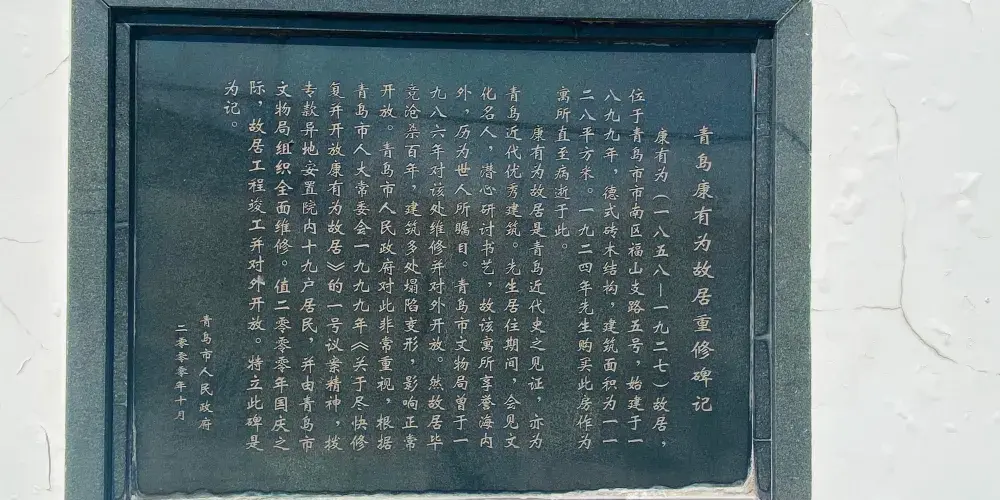 青岛康有为故居重修碑记
康有为(一八五八—一九二七)故居,
位于青岛市市南区福山支路五号,始建于一
八九九年,德式砖木结构,建筑面积为一一
二八平方米。一九二四年先生购买此房作为
寓所直至病逝于此。
康有为故居是青岛近代史之见证,亦为
青岛近代优秀建筑。先生居住期间,会见文
化名人,潜心研讨书艺,故该寓所享誉海内
外,历为世人所瞩目。青岛市文物局曾于一
九八六年对该处维修并对外开放。然故居毕
竟沧桑百年,建筑多处塌陷变形,影响正常
开放。青岛市人民政府对此非常重视,根据
青岛市人大常委会一九九九年《关于尽快修
复并开放康有为故居》的一号议案精神,拨
专款异地安置院内十九户居民,并由青岛市
文物局组织全面维修。值二零零零年国庆之
际,故居工程竣工并对外开放。特立此碑是
为记。
青岛市人民政府
二零零零年十月